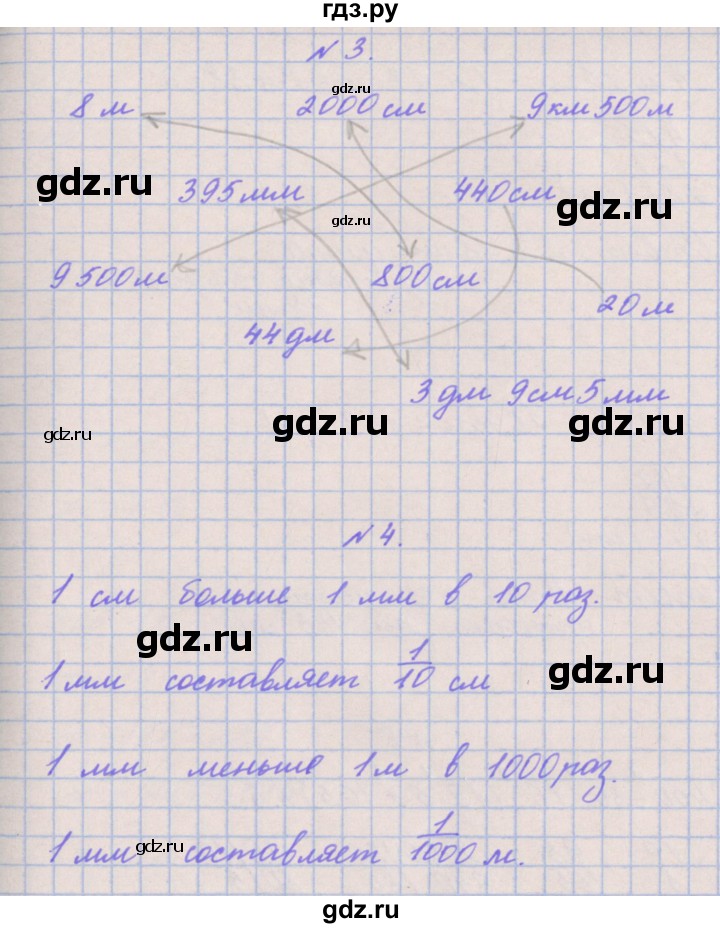 гдз.ру
N 3.
gdz.ru
8 м 2000 см 9 км 500 м
gdz.ru
395 мм 440 см
gdz.ru
gdz.ru
9 500 м 800 см
20 м
44 дм
3 дм 9 см 5 мм
gdz.ru
gdz.ru
gdz.ru
N 4.
1 см больше 1 мм в 10 раз.
gdz.ru
1 мм составляет 1/10 см
gdz.ru
1 мм меньше 1 м в 1000 раз.
1 мм составляет 1/1000 м.
gdz.ru
gdz.ru